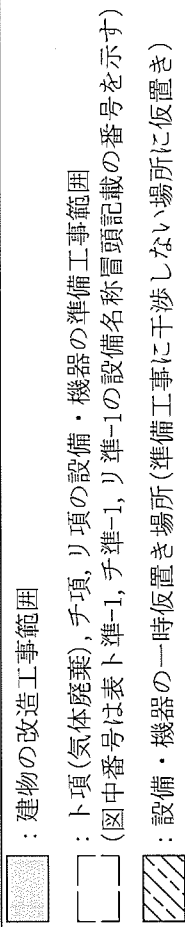 ：建物の改造工事範囲
：ト項(気体廃棄)，チ項，リ項の設備・機器の準備工事範囲
(図中番号は表ト準-1，チ準-1，リ準-1の設備名称冒頭記載の番号を示す)
：設備・機器の一時仮置き場所(準備工事に干渉しない場所に仮置き)